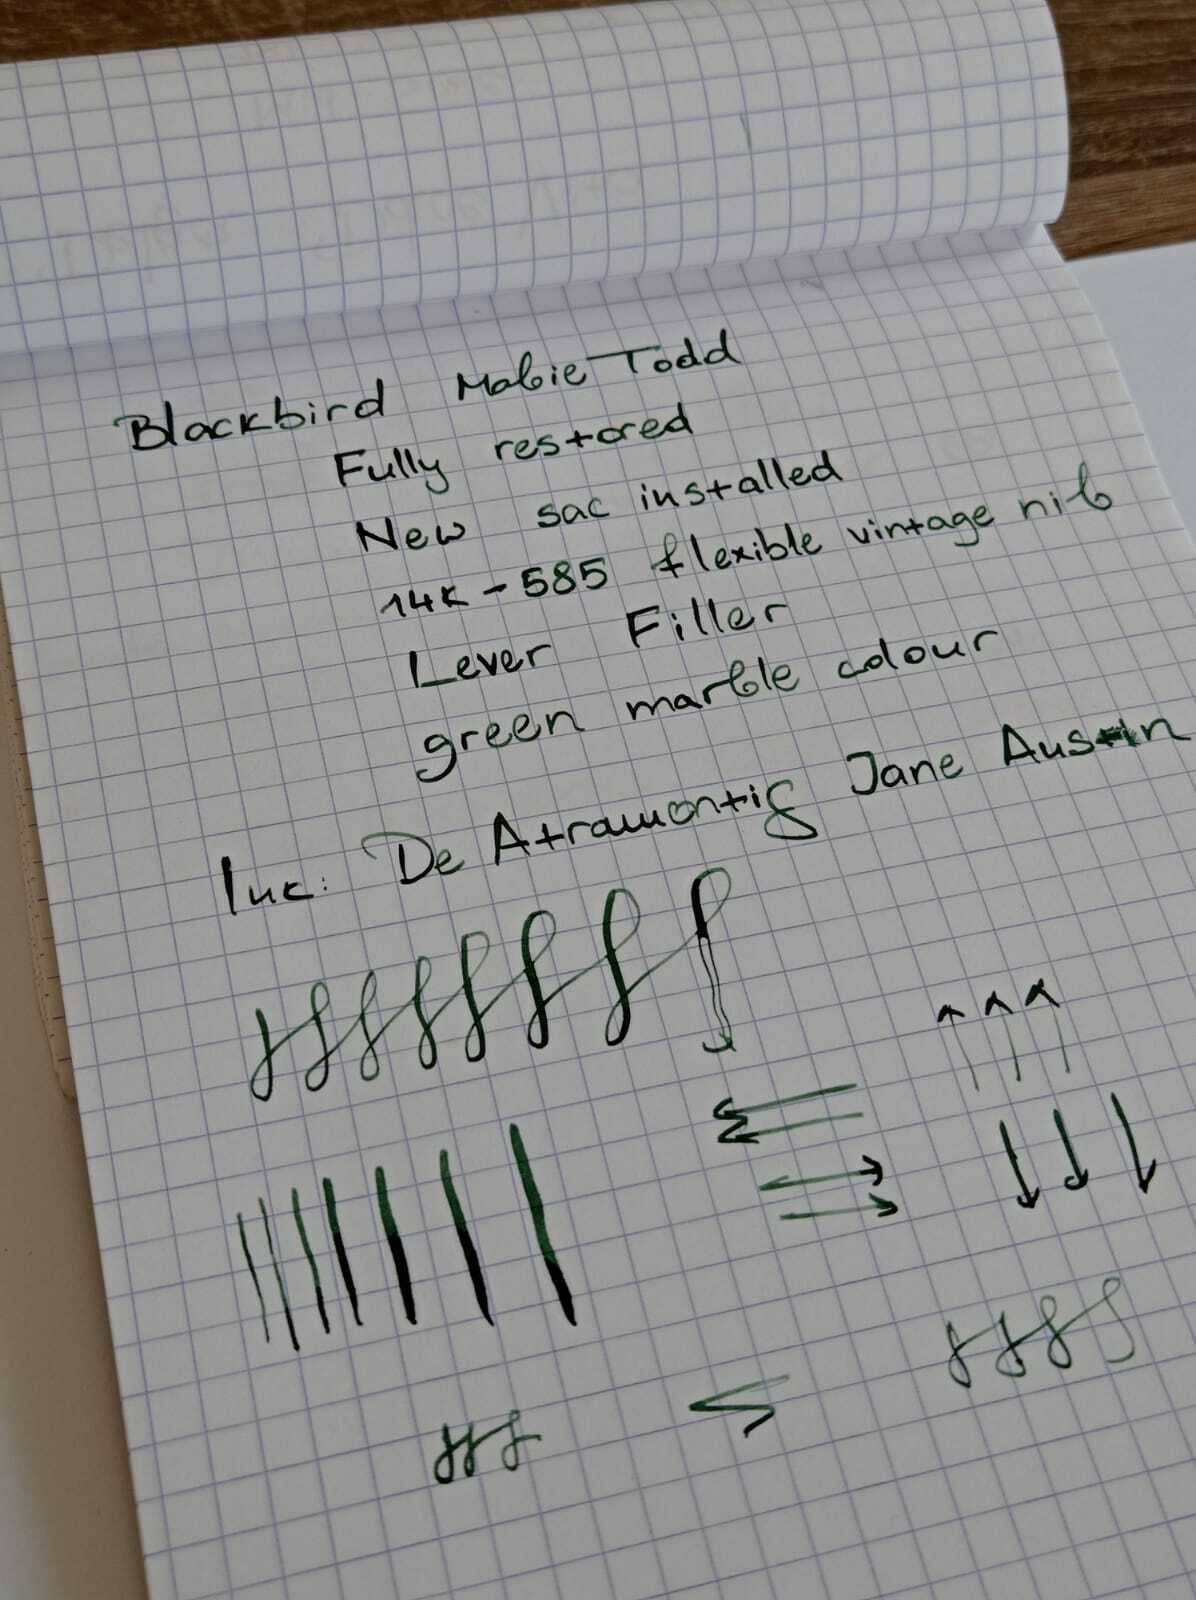 Blackbird Mabie Todd
Fully restored
New sac installed
14K - 585 flexible vintage nib
Lever Filler
green marble colour
Ink: De Atramentis Jane Austin